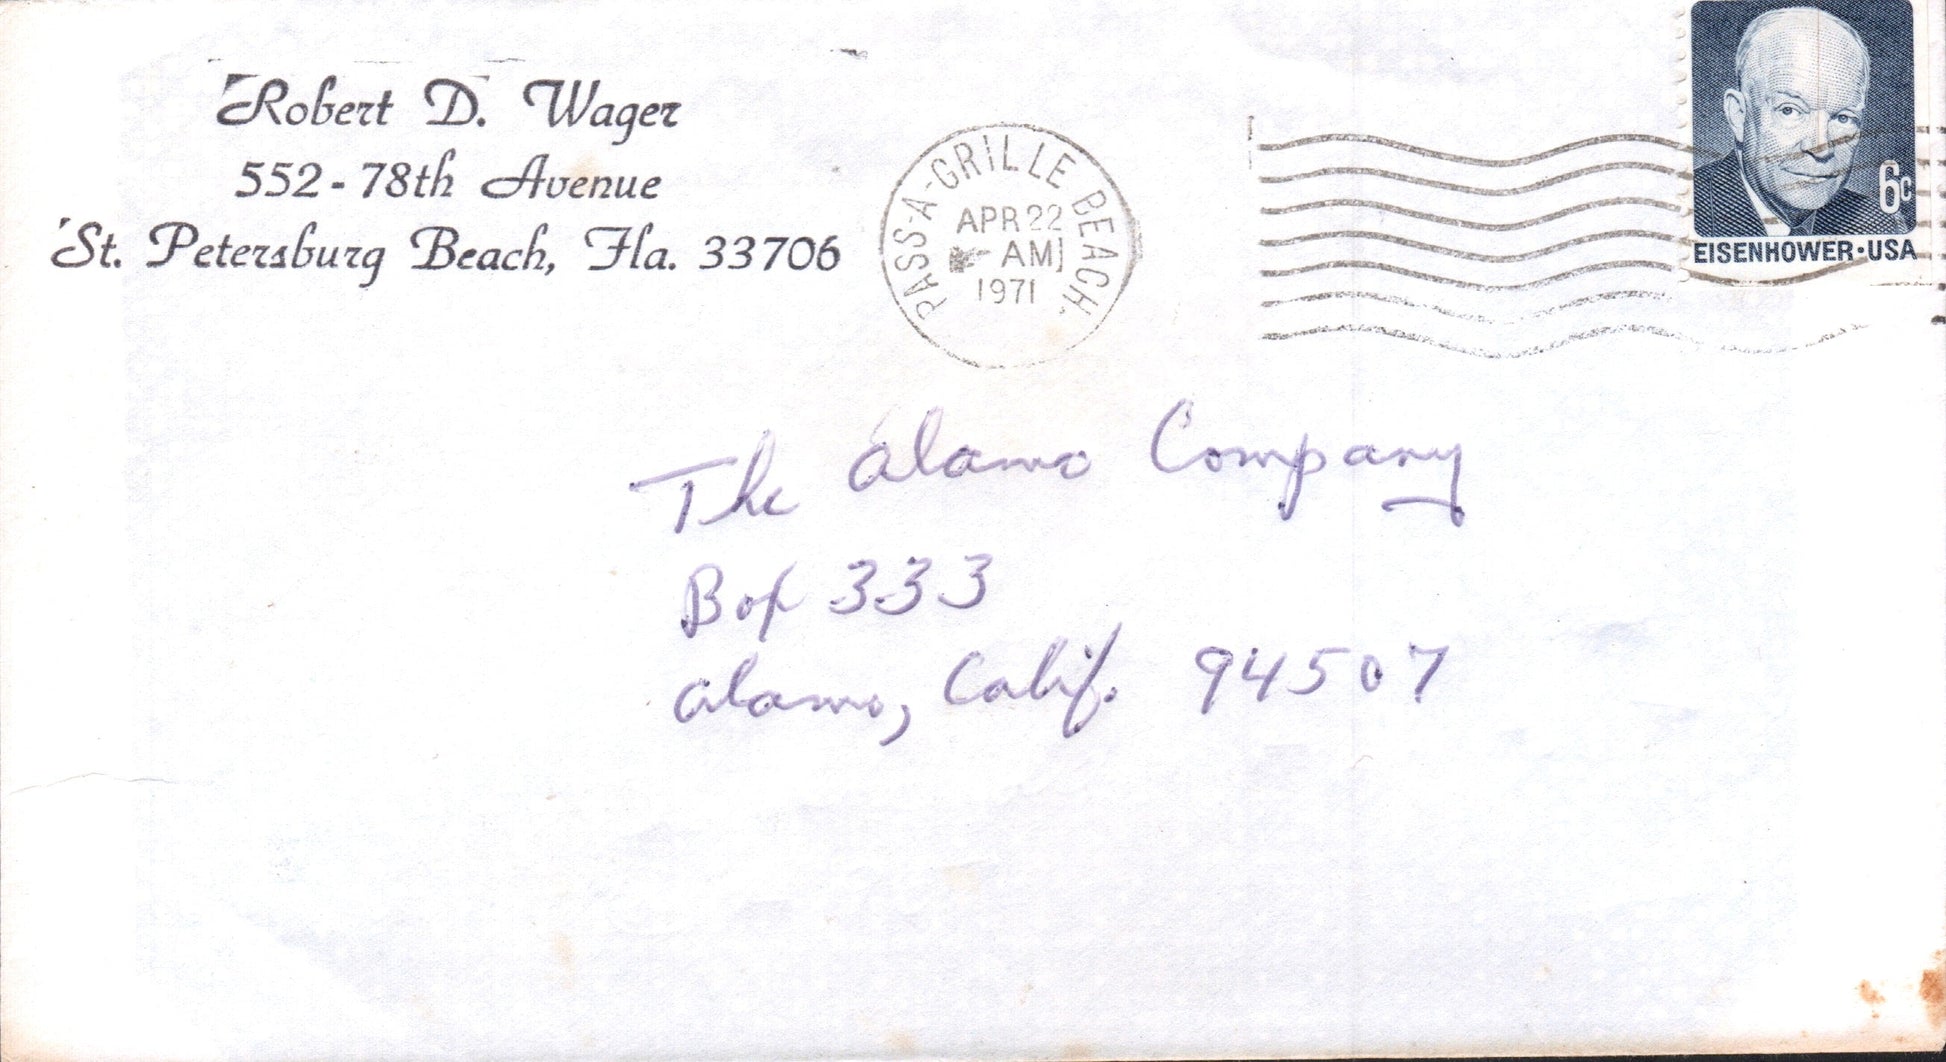 Robert D. Wager
552 - 78th Avenue
St. Petersburg Beach, Fla. 33706
PASS-A-GRILLE BEACH,
APR 22
AM
1971
6c
EISENHOWER·USA
The Alamo Company
Box 333
Alamo, Calif. 94507